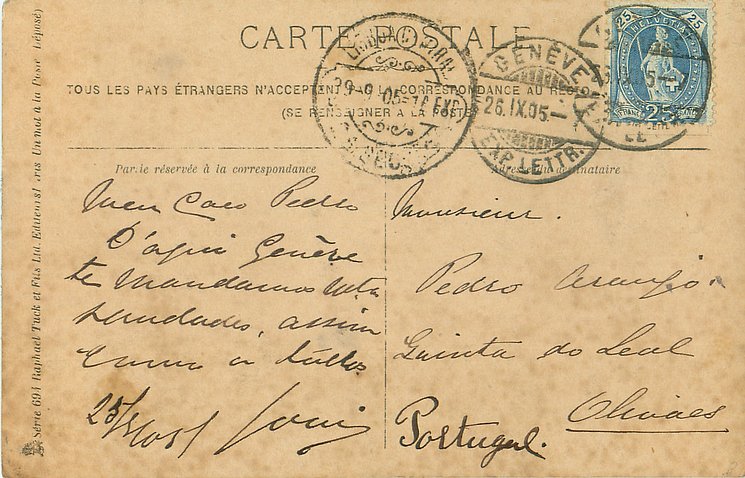 CARTE POSTALE
TOUS LES PAYS ÉTRANGERS N'ACCEPTENT CORRESPONDANCE AU
(SE RENSEIGNER A LA POSTE)
Partie réservée à la correspondance
Adresse du destinataire
HELVETIA
25 25
25
FRANCO
GENÈVE
26.IX.05
EXP. LETTR.
LISBOA CENTRAL
29-9-05
Meu Caro Pedro
D'aqui Genève
te mandamos
saudades, assim
como a todos.
25/9/05
Monsieur.
Pedro Araujo.
Quinta do Leal
Olivaes
Portugal.
Série 691 Raphael Tuck et Fils Ltd. Editeurs Paris Un mot à la Poste (Déposé)